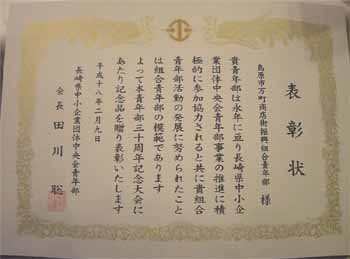 表彰状
島原市万町商店街振興組合青年部 様
貴青年部は永年に亘り長崎県中小企
業団体中央会青年部事業の推進に積
極的に参加協力されると共に貴組合
青年部活動の発展に努められたこと
は組合青年部の模範であります
よって本青年部三十周年記念大会に
あたり記念品を贈り表彰いたします
平成十八年二月九日
長崎県中小企業団体中央会青年部
会長 田川 聡